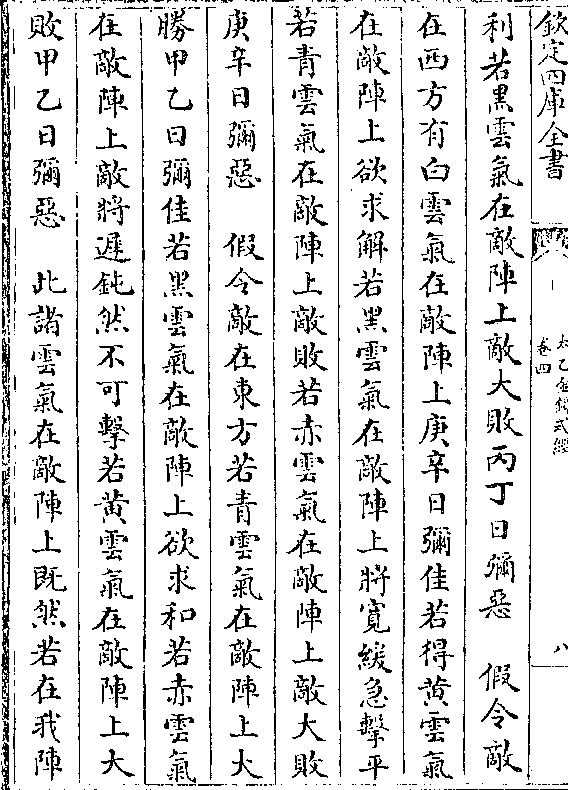 欽定四庫全書
太乙金鏡式經
卷四
八
利若黑雲氣在敵陣上敵大敗丙丁日彌惡　假令敵
在西方有白雲氣在敵陣上庚辛日彌佳若得黄雲氣
在敵陣上欲求解若黑雲氣在敵陣上將寛緩急擊平
若青雲氣在敵陣上敵敗若赤雲氣在敵陣上敵大敗
庚辛日彌惡　假令敵在東方若青雲氣在敵陣上大
勝甲乙日彌佳若黑雲氣在敵陣上欲求和若赤雲氣
在敵陣上敵將遲鈍然不可擊若黄雲氣在敵陣上大
敗甲乙日彌惡　此諸雲氣在敵陣上既然若在我陣